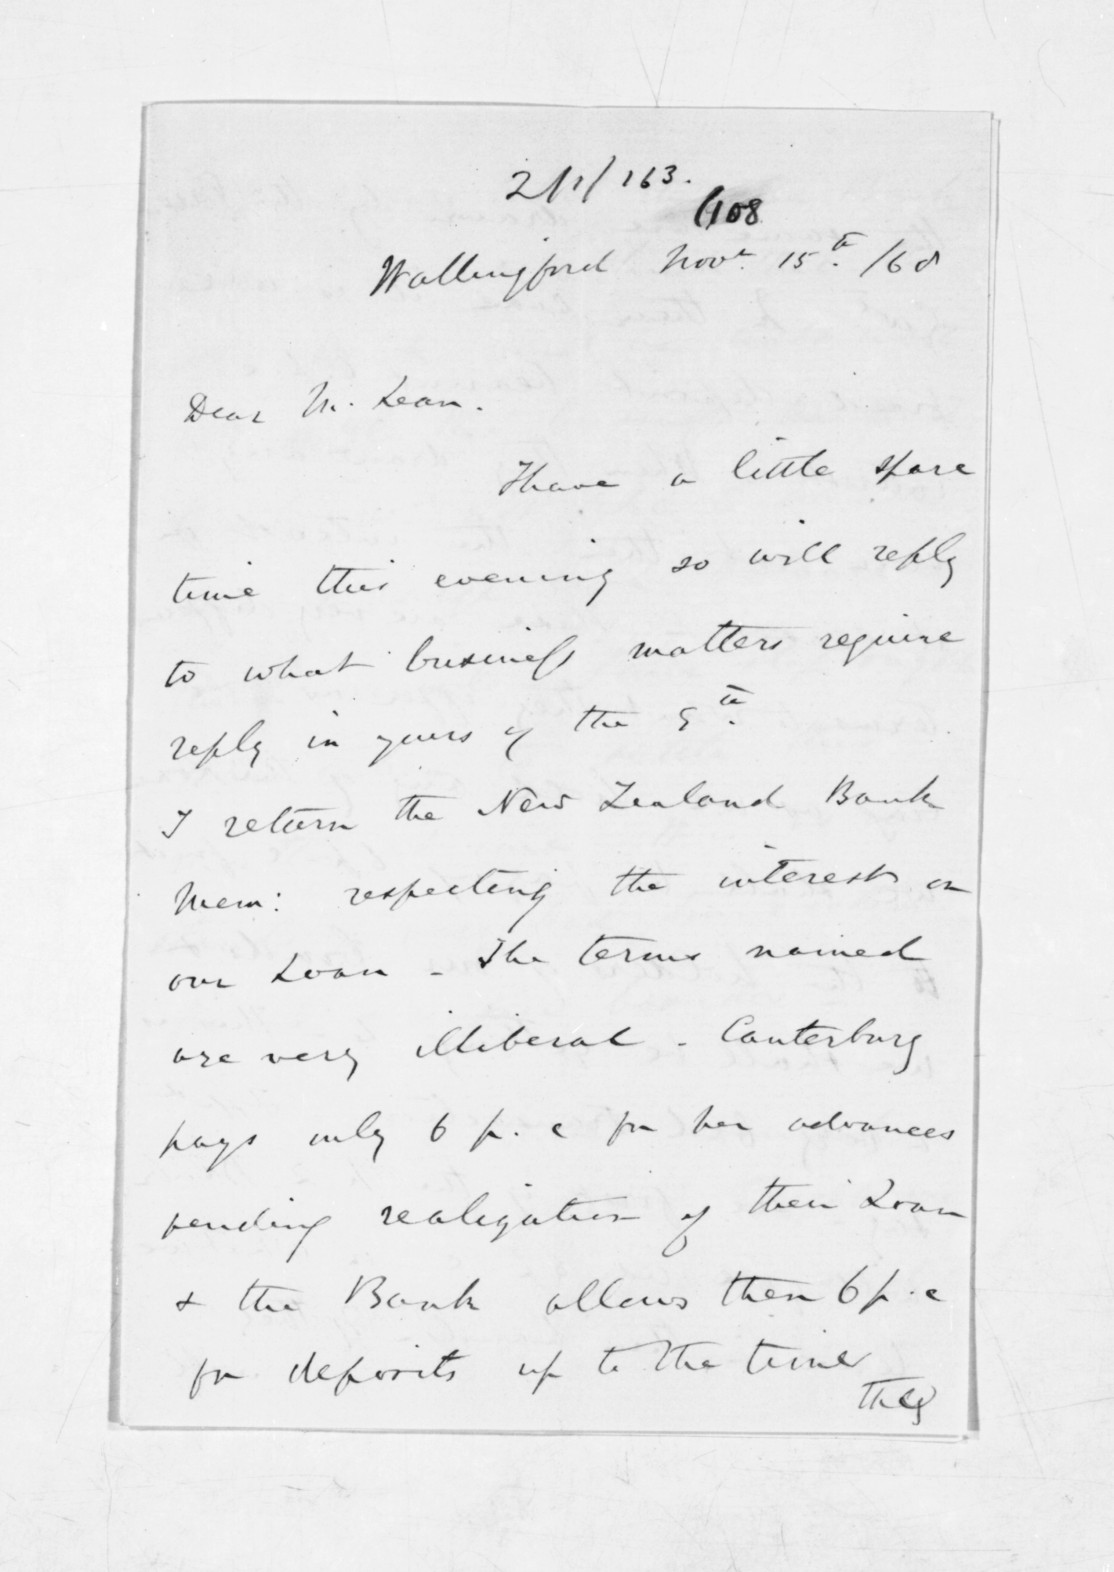 2/1/163.
(108
Wallingford Novr. 15th. /68
Dear McLean.
I have a little spare
time this evening so will reply
to what business matters require
reply in yours of the 9th.
I return the New Zealand Bank
Mem: respecting the interest on
our Loan - The terms named
are very illiberal - Canterbury
pays only 6 p. c for her advances
pending realization of their Loan
& the Bank allows them 6 p. c
for deposits up to the time
they